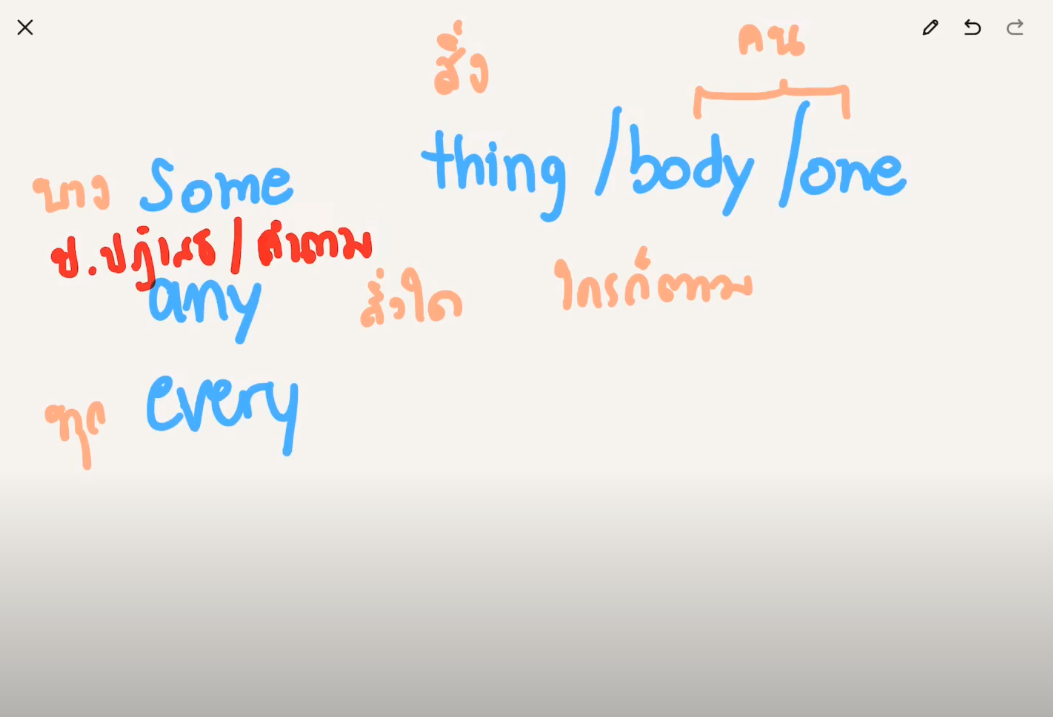 สิ่ง คน
thing /body /one
บาง some
ป.ปฏิเสธ / คำถาม
any สิ่งใด ใครก็ตาม
ทุก every